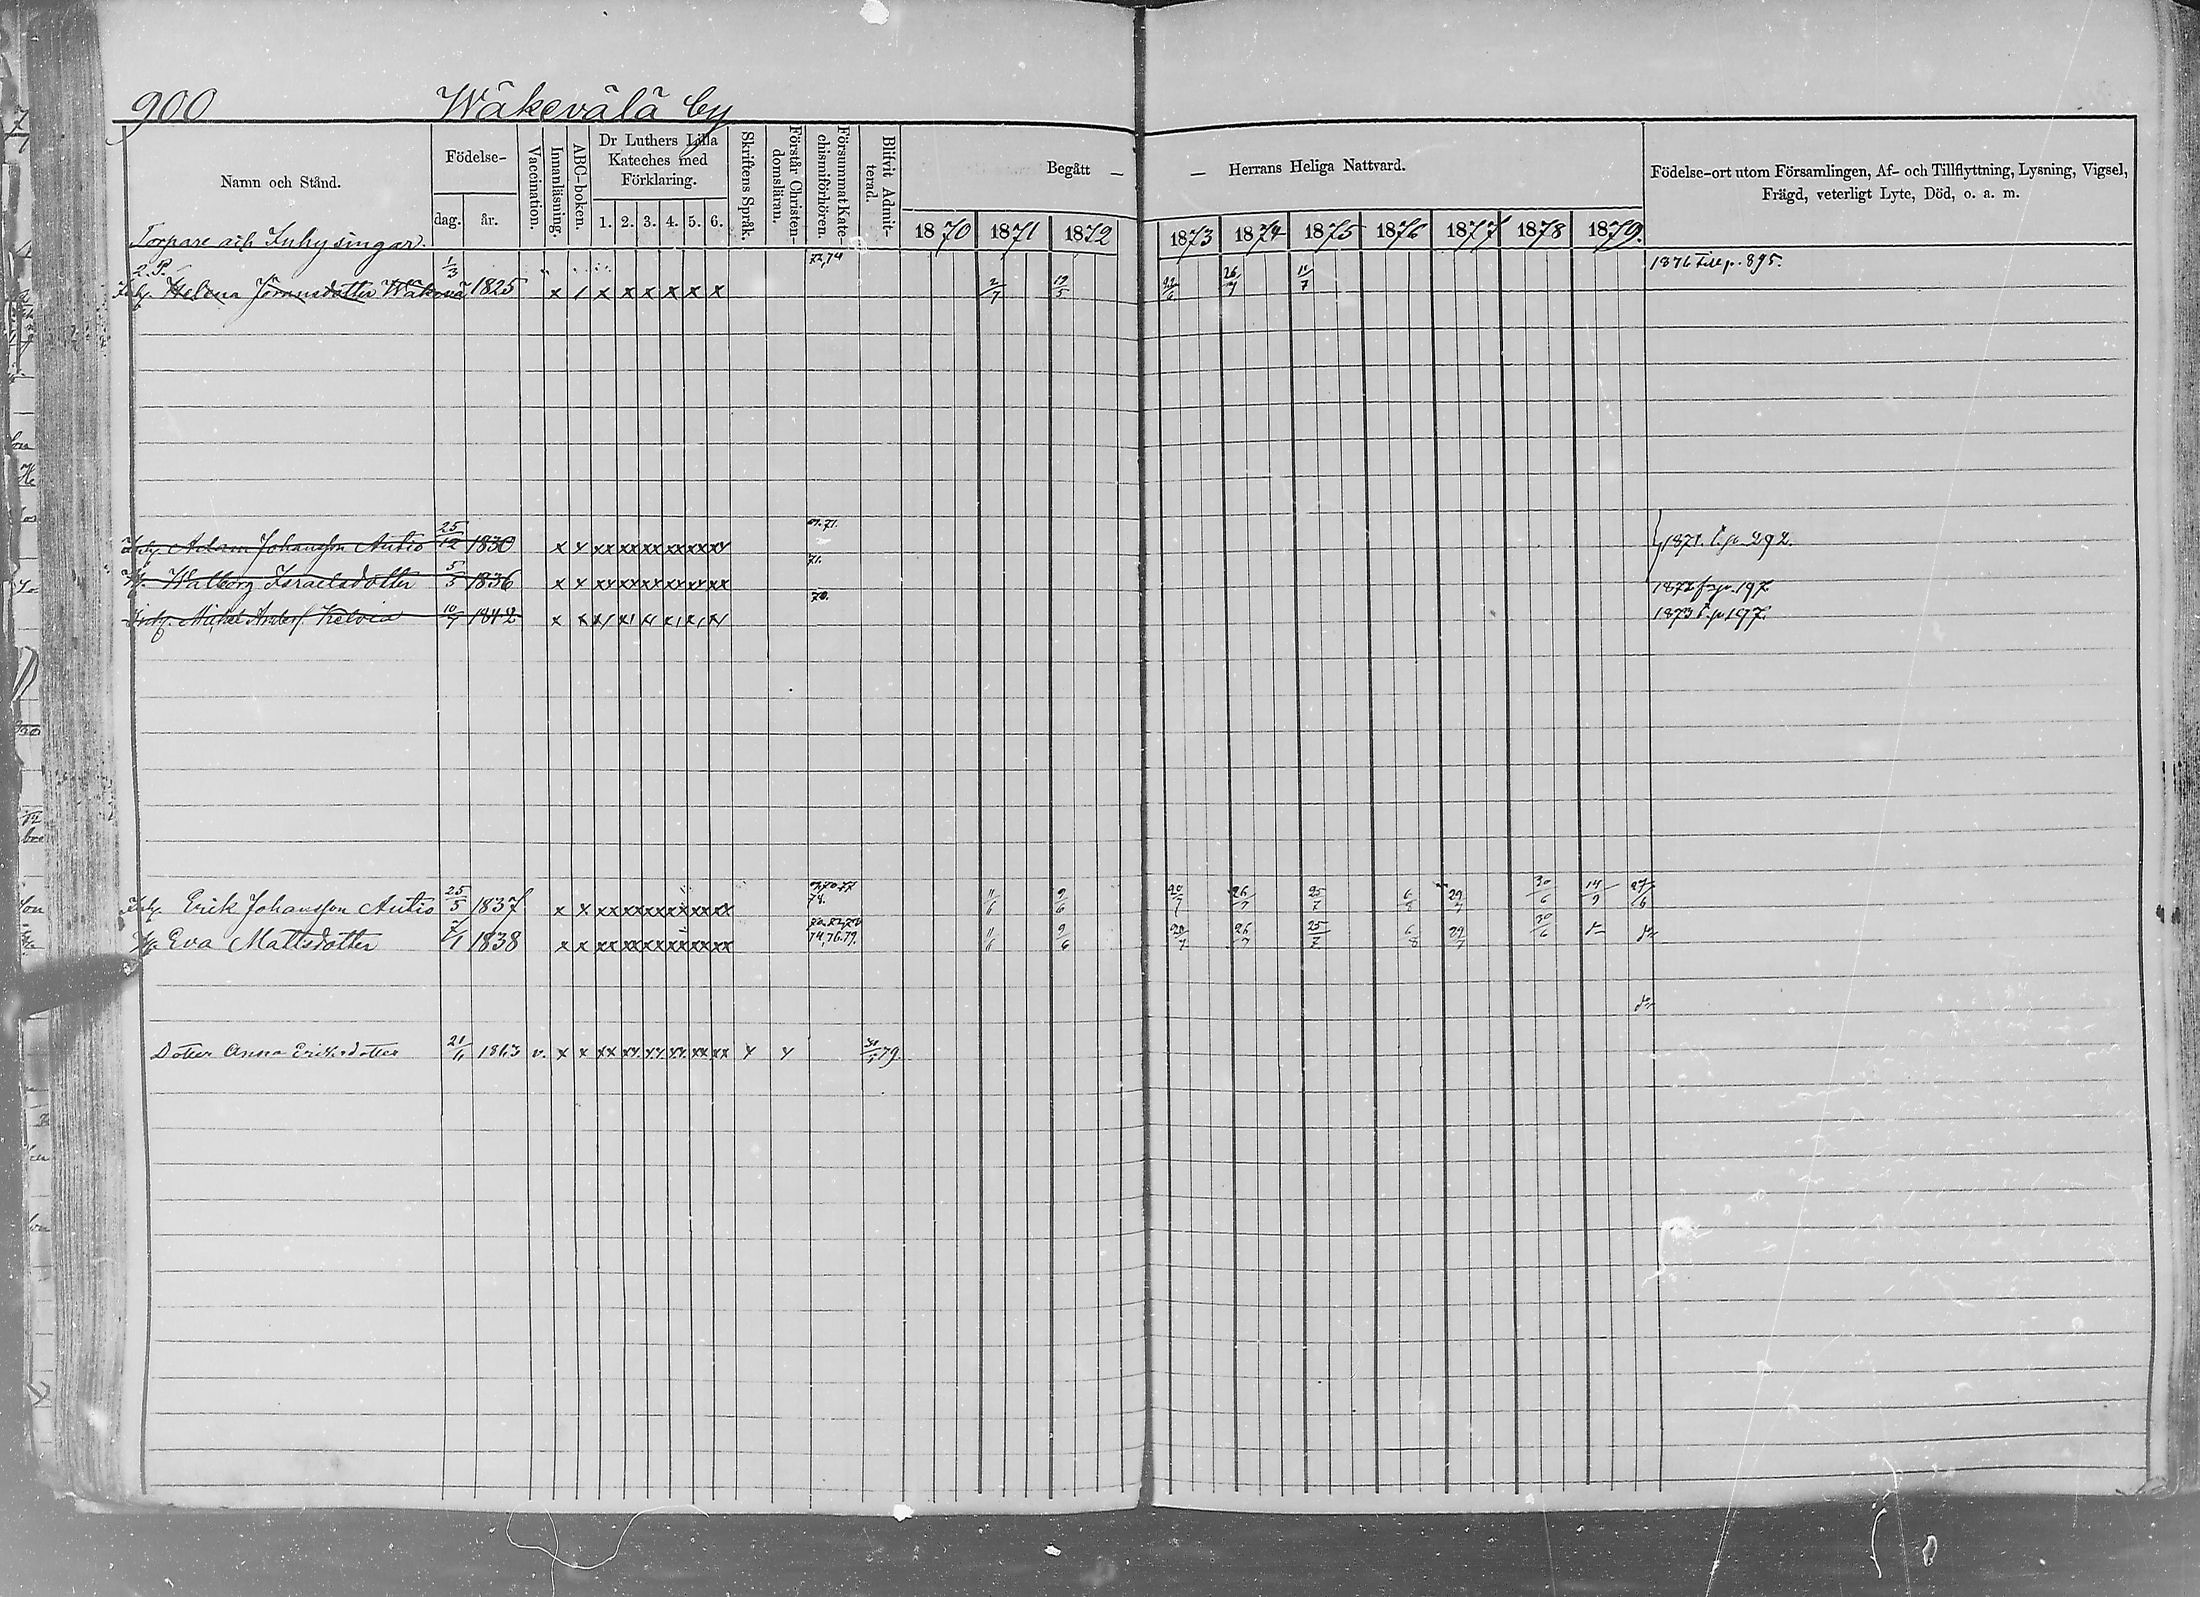 900 Wäkevälä by
Namn och Stånd.
Födelse-
dag. år.
Vaccination.
Innanläsning.
ABC-boken.
Dr Luthers Lilla Kateches med Förklaring.
1. 2. 3. 4. 5. 6.
Skriftens Språk.
Förstår Christendomsläran.
Försummat Katechismiförhören.
Blifvit Admitterad.
Begått — — Herrans Heliga Nattvard.
1870 1871 1872 1873 1874 1875 1876 1877 1878 1879.
Födelse-ort utom Församlingen, Af- och Tillflyttning, Lysning, Vigsel,
Frägd, veterligt Lyte, Död, o. a. m.
Torpare och Inhysingar.
Inh. Helena Jöransdotter 1/3 1825 x / x x x x x x 2/7 26/7 11/7 1876 till p. 895.
Inh. Adam Johansson Autio 25/12 1830 x x xx xx xx xx xx xx 71. 1871. t. p. 292.
H. Walborg Israelsdotter 5/5 1836 x x xx xx xx xx xx xx 71.
Michel Kelvia 10/7 1842 x x 70. 1873 t. p. 197.
Inh. Erik Johansson Autio 25/5 1837 x x xx xx xx xx xx xx 74. 11/6 9/6 26/7 25/7 6/8 29/7 30/6 14/9
H. Eva Mattsdotter 7/1 1838 x x xx xx xx xx xx xx 74, 76. 79. 11/6 9/6 26/7 25/7 6/8 29/7 30/6
Dotter Anna Eriksdotter 1863 v. x x xx xx xx xx xx xx x x 79